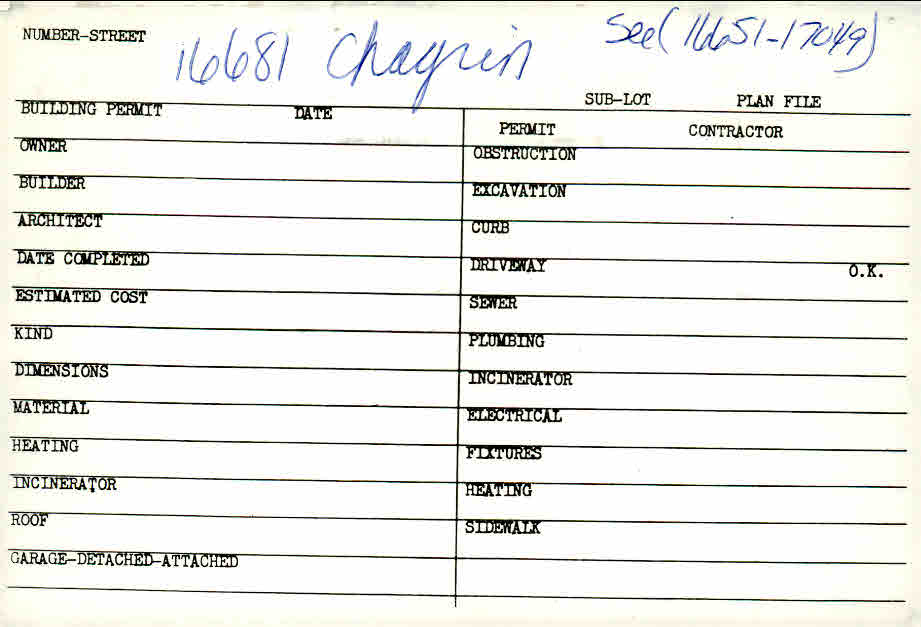 NUMBER-STREET 16681 Chagrin See (16651-17049)
SUB-LOT PLAN FILE
BUILDING PERMIT DATE
PERMIT CONTRACTOR
OWNER
OBSTRUCTION
BUILDER
EXCAVATION
ARCHITECT
CURB
DATE COMPLETED
DRIVEWAY O.K.
ESTIMATED COST
SEWER
KIND
PLUMBING
DIMENSIONS
INCINERATOR
MATERIAL
ELECTRICAL
HEATING
FIXTURES
INCINERATOR
HEATING
ROOF
SIDEWALK
GARAGE-DETACHED-ATTACHED